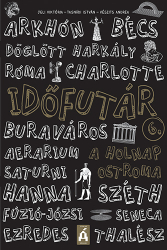 GELI VIKTÓRIA · TASNÁDI ISTVÁN · VÉSSITS ANDREA
ARKHÓN BÉCS
DÖGLÖTT HARKÁLY
RÓMA CHARLOTTE
IDŐFUTÁR
BURAVÁROS 6
AERARIUM A HOLNAP
SATURNI OSTROMA
HANNA SZÉTH
FÚZIÓ-JÓZSI SENECA
EZREDES THALÉSZ